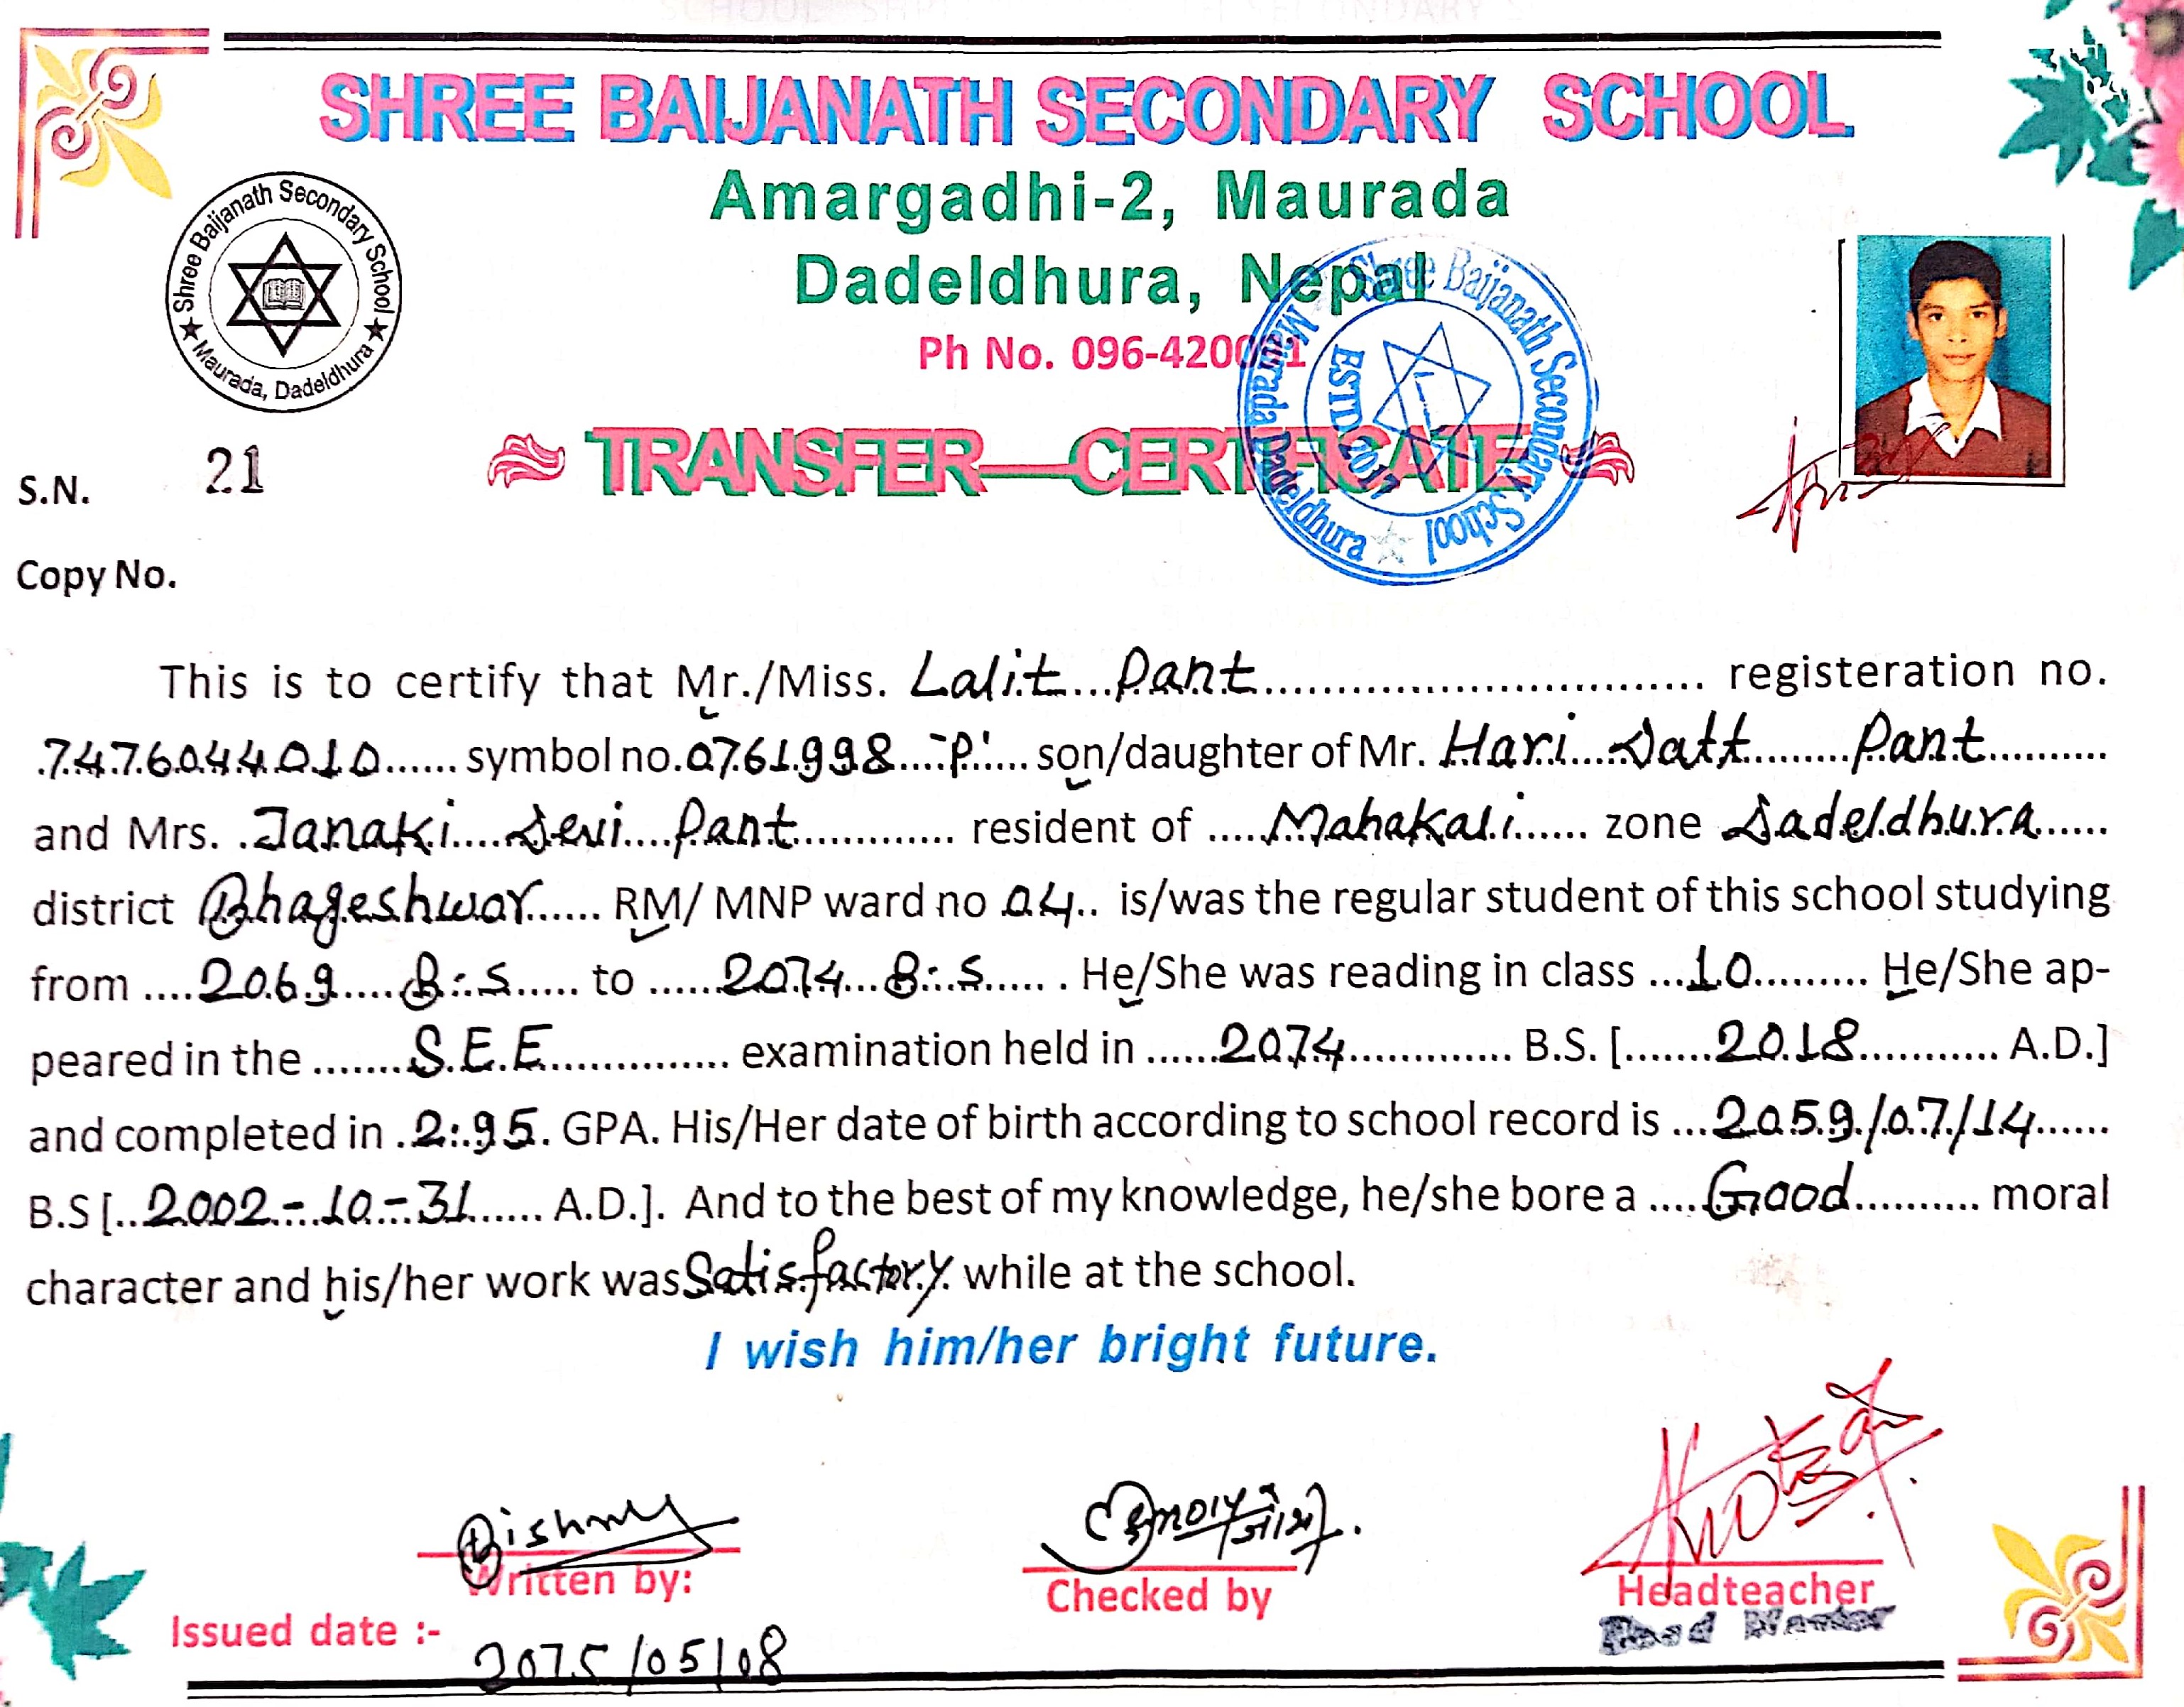 SHREE BAIJANATH SECONDARY SCHOOL
Amargadhi-2, Maurada
Dadeldhura, Nepal
Ph No. 096-420
Shree Baijanath Secondary School
Maurada, Dadeldhura
Shree Baijanath Secondary School
Maurada Dadeldhura
ESTD 2017
S.N. 21
TRANSFER CERTIFICATE
Copy No.
This is to certify that Mr./Miss. Lalit Pant registeration no.
7476044010 symbol no. 0761998 'P' son/daughter of Mr. Hari Datt Pant
and Mrs. Janaki Devi Pant resident of Mahakali zone Dadeldhura
district Bhageshwor RM/ MNP ward no 04 is/was the regular student of this school studying
from 2069 B.S to 2074 B.S. He/She was reading in class 10 He/She ap-
peared in the S.E.E examination held in 2074 B.S. [ 2018 A.D.]
and completed in 2.95 GPA. His/Her date of birth according to school record is 2059/07/14
B.S [ 2002-10-31 A.D.]. And to the best of my knowledge, he/she bore a Good moral
character and his/her work was Satisfactory while at the school.
I wish him/her bright future.
Written by:
Checked by
Headteacher
Head Master
Issued date :- 2075/05/08